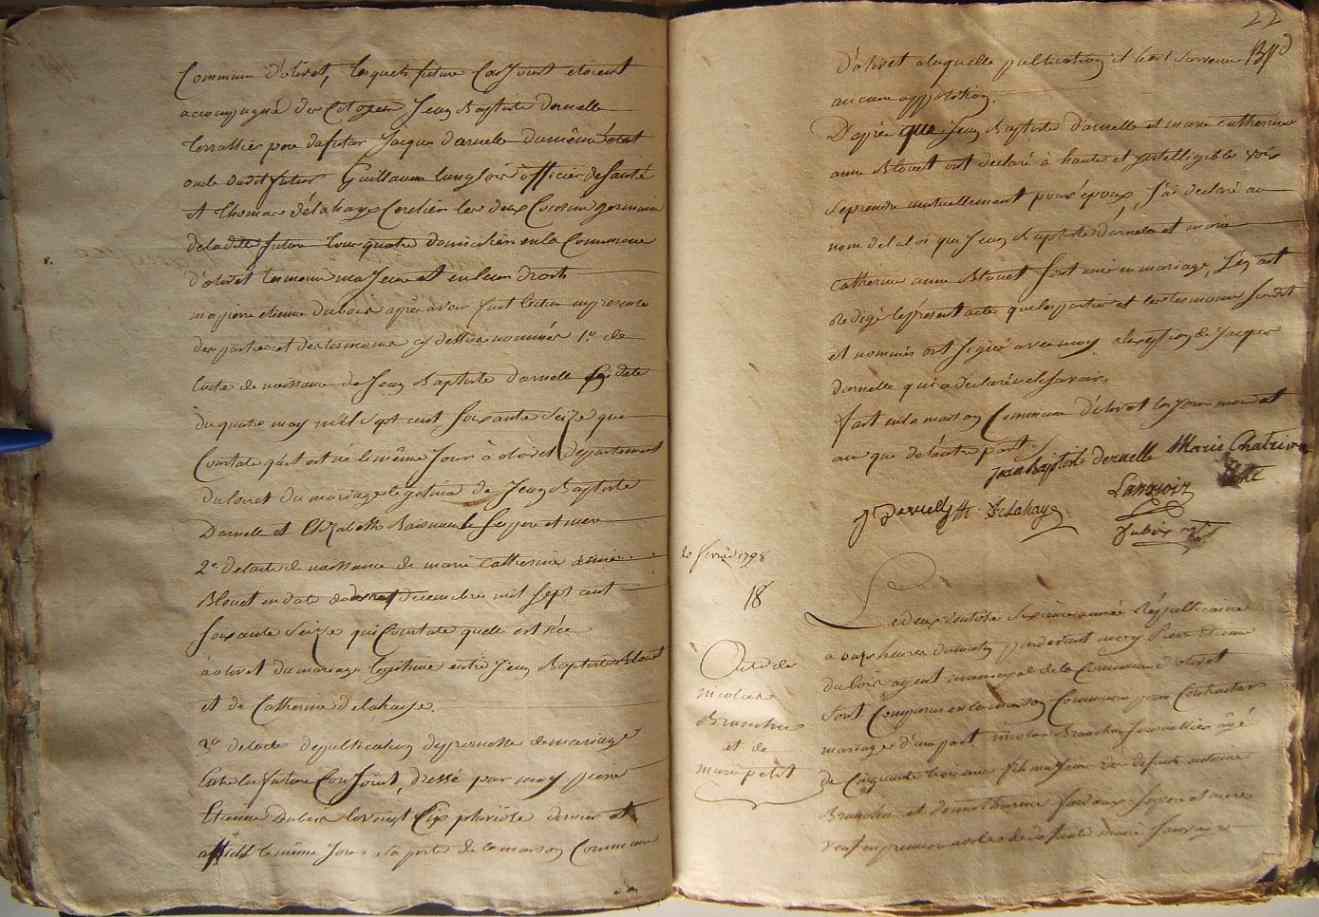 Commune d'olivet, lesquels futurs Conjoint etoient
accompagné des Citoyen Jean Baptiste darnelle
Jacque darnelle
oncle dudit futur Guillaume langlois officier de Santé
et thomas délahaye Cordier les deux Cousin germain
deladitte future tous quatre domicilier en la Commune
d'olivet les mesme majeur et en leur droits
moy pierre etienne dubois après avoir fait lecture en presence
des partie et des tesmoins cy dessus nommés 1º de
lacte de naissance de Jean Baptiste darnelle en date
du quatre may mil sept cent Soixante Seize que
Constate quil est né le même Jour à olivet département
du loiret du mariage legitime de Jean Baptiste
Darnelle et Elizabeth Ses pere et mere
2º de lacte de naissance de marie Catherine anne
Blouet en date du decembre mil sept cent
Soixante Seize qui Constate quelle est née
à olivet du mariage legitime entre Jean Baptiste Blouet
et de Catherine délahaye.
3º de lacte de publication de promesse de mariage
entre les futurs Conjoint, dréssé par moy pierre
Etienne Dubois le vingt Six pluviose dernier et
affiché le même Jour à la porte de la maison Commune
22
d'olivet a laquelle publication il n'est survenu
aucune opposition.
D'après que Jean Baptiste darnelle et marie catherine
anne Blouet ont declaré à haute et intelligible voix
se prendre mutuellement pour époux, J'ai declaré au
nom de la loi que Jean Baptiste darnelle et marie
catherine anne Blouet sont unis en mariage, J'ay
redigé le présent acte que les parties et les tesmoins susdit
et nommés ont Signé avec moy, a lexception de Jacque
darnelle qui a declaré ne le savoir.
fait en la maison Commune d'olivet les Jour mois et
an que de lautre part
Jean Baptiste dernelle Marie Chatrine
Langlois
J. Darnelle th. Délahaye
Dubois
20 fevrier 1798
18
Acte de
nicolas
Branchu
et de
marie petit
Le deux ventose Sixieme année Républicaine
a onze heures du matin pardevant moy Pierre Etienne
dubois agent municipal de la Commune d'olivet
Sont Comparus en la maison Commune pour Contracter
mariage d'une part nicolas Branchu Journallier âgé
de Cinquante trois ans fils majeur de defunt antoine
Branchu et d'anne fardeaux Ses pere et mere
veuf en premiere noces de defunte marie